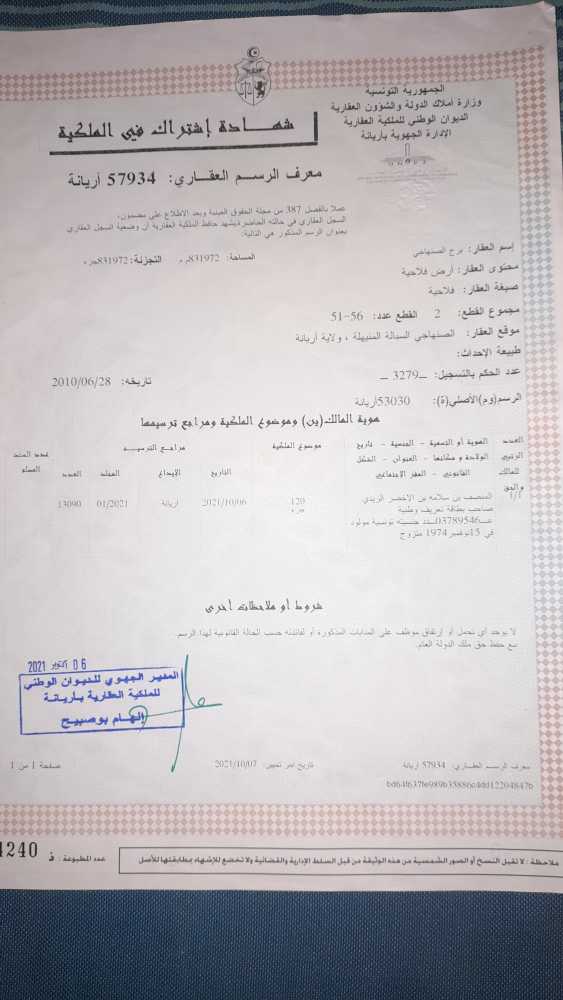 الجمهورية التونسية
وزارة أملاك الدولة والشؤون العقارية
الديوان الوطني للملكية العقارية
الإدارة الجهوية بأريانة
شهـــادة إشتراك في الملكية
معرف الرســم العقـــاري: 57934 أريانة
عملا بالفصل 387 من مجلة الحقوق العينية وبعد الاطلاع على مضمون،
السجل العقاري في حالته الحاضرة يشهد حافظ الملكية العقارية أن وضعية السجل العقاري
بعنوان الرسم المذكور هي التالية:
إسم العقار: برج الصنهاجي
المساحة: 831972م م التجزئة: 831972جزء
محتوى العقار: أرض فلاحية
صيغة العقار: فلاحية
مجموع القطع: 2 القطع عدد: 56-51
موقع العقار: الصنهاجي السبالة المنيهلة ، ولاية أريانة
طبيعة الإحداث:
عدد الحكم بالتسجيل: ــ3279 ــ تاريخه: 2010/06/28
الرسم(وم)الأصلي(ة): 53030أريانة
هوية المالك(ين) وموضوع الملكية ومراجع ترسيمها
العدد الرتبي للمالك والحق
الهوية أو التسمية - الجنسية - تاريخ
الولادة و مكانها - العنوان - الممثل
القانوني - المقر الإجتماعي
موضوع الملكية
مراجـع الترسيـــم
التاريخ الإيداع المجلد العدد
1/1
المنصف بن سلامه بن الاخضر الزيدي
صاحب بطاقة تعريف وطنية
عــ03789546ــدد جنسيته تونسية مولود
في 15نوفمبر1974 متزوج
120 جزء 2021/10/06 اريانة 01/2021 13090
شروط أو ملاحظات أخرى
لا يوجد أي تحمل أو إرتفاق موظف على المنابات المذكورة أو لفائدته حسب الحالة القانونية لهذا الرسم.
مع حفظ حق ملك الدولة العام.
06 أكتوبر 2021
المدير الجهوي للديوان الوطني
للملكية العقارية بأريانة
إلهام بوصبيح
معرف الرسم العقـاري: 57934 أريانة تاريخ آخر تحيين: 2021/10/07 صفحة 1 من 1
ملاحظة : لا تقبل النسخ أو الصور الشمسية من هذه الوثيقة من قبل السلط الإدارية والقضائية ولا تخضع للإشهاد بمطابقتها للأصل
عدد المطبوعة : ف